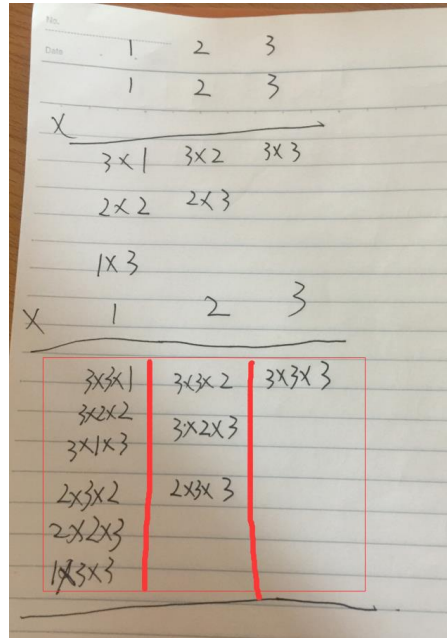 No.
Date
1 2 3
1 2 3
X
3×1 3×2 3×3
2×2 2×3
1×3
X 1 2 3
3×3×1 3×3×2 3×3×3
3×2×2
3×2×3
3×1×3
2×3×2 2×3×3
2×2×3
1×3×3